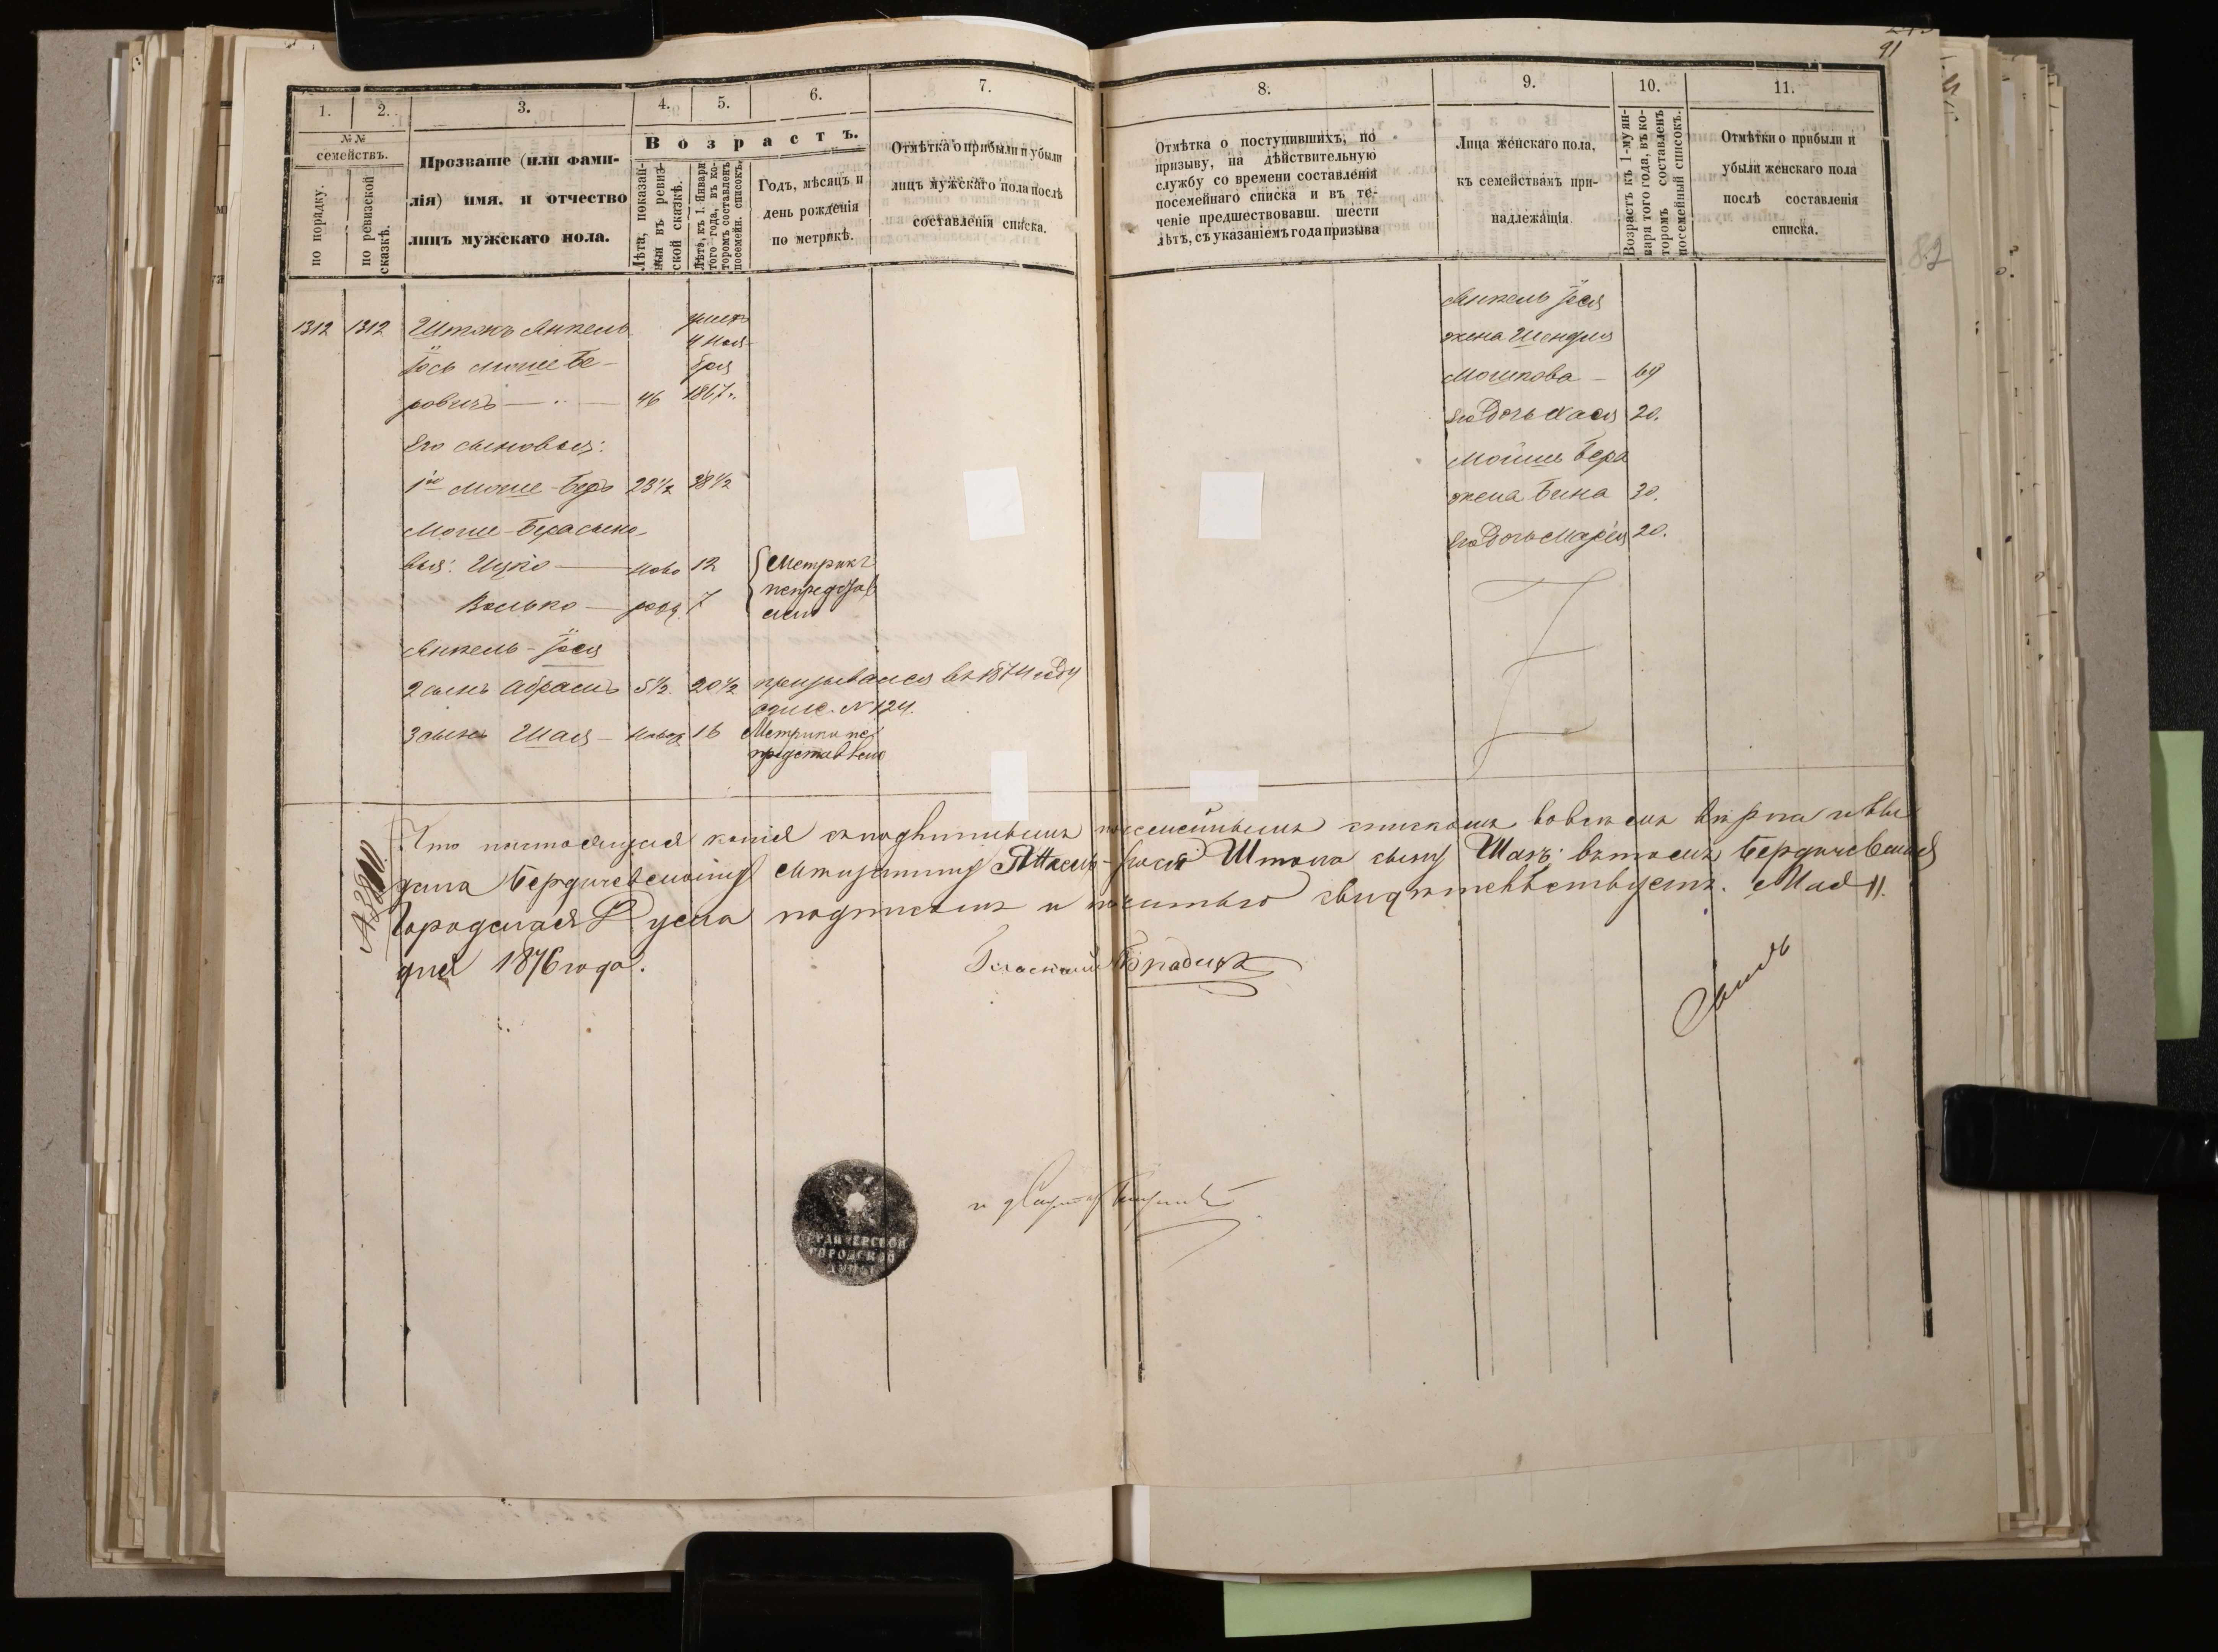 91
82
1.
2.
3.
4.
5.
6.
7.
№№
семействъ.
по порядку.
по ревизской
сказкѣ.
Прозваніе (или фами-
лія) имя, и отчество
лицъ мужскаго пола.
Возрастъ.
Лѣта, показан-
ныя въ ревиз-
ской сказкѣ.
Лѣта, къ 1. Января
того года, въ ко-
торомъ составленъ
посемейн. списокъ.
Годъ, мѣсяцъ и
день рожденія
по метрикѣ.
Отмѣтка о прибыли и убыли
лицъ мужскаго пола послѣ
составленія списка.
1312 1312 Штокъ Янкель
Іось Моше Бе-
ровичъ — 46
умеръ
Ноя-
бря
1867 г.
Его сыновья:
1й Моше-Беръ 23½ 38½
Моше-Бера сыно-
вья: Ицко — ново 12
Волько — рожд. 7
Метрикъ
непредстав
лено
Янкель-Іося
2 сынъ Абрамъ 5½ 20½ призывался въ 1874 году
№ 124.
3 сынъ Шая — новор 16 Метрики не
представлено
8.
9.
10.
11.
Отмѣтка о поступившихъ, по
призыву, на дѣйствительную
службу со времени составленія
посемейнаго списка и въ те-
ченіе предшествовавш. шести
лѣтъ, съ указаніемъ года призыва
Лица женскаго пола,
къ семействамъ при-
надлежащія
Возрастъ къ 1-му ян-
варя того года, въ ко-
торомъ составленъ
посемейный списокъ.
Отмѣтки о прибыли и
убыли женскаго пола
послѣ составленія
списка.
Янкель Іося
жена Шендля
Мошкова — 69
его дочь Хася 20.
Мойше Бера
жена Бина 30.
его дочь Марія 20.
Что настоящая копія съ подлиннымъ посемейнымъ спискомъ во всемъ вѣрна и вы
дана Бердичевскому мѣщанину Янкель-Іося Штока сыну Шаѣ; въ томъ Бердичевская
Городская Дума подписомъ и печатью свидѣтельствуетъ. Мая 11.
дня 1876 года.
Гласный
БЕРДИЧЕВСКОЙ
ГОРОДСКОЙ
ДУМЫ